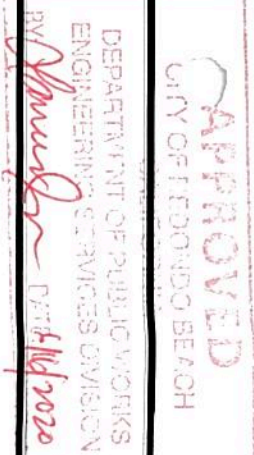 APPROVED
CITY OF REDONDO BEACH
DEPARTMENT OF PUBLIC WORKS
ENGINEERING SERVICES DIVISION
BY DATE 6/16/2020